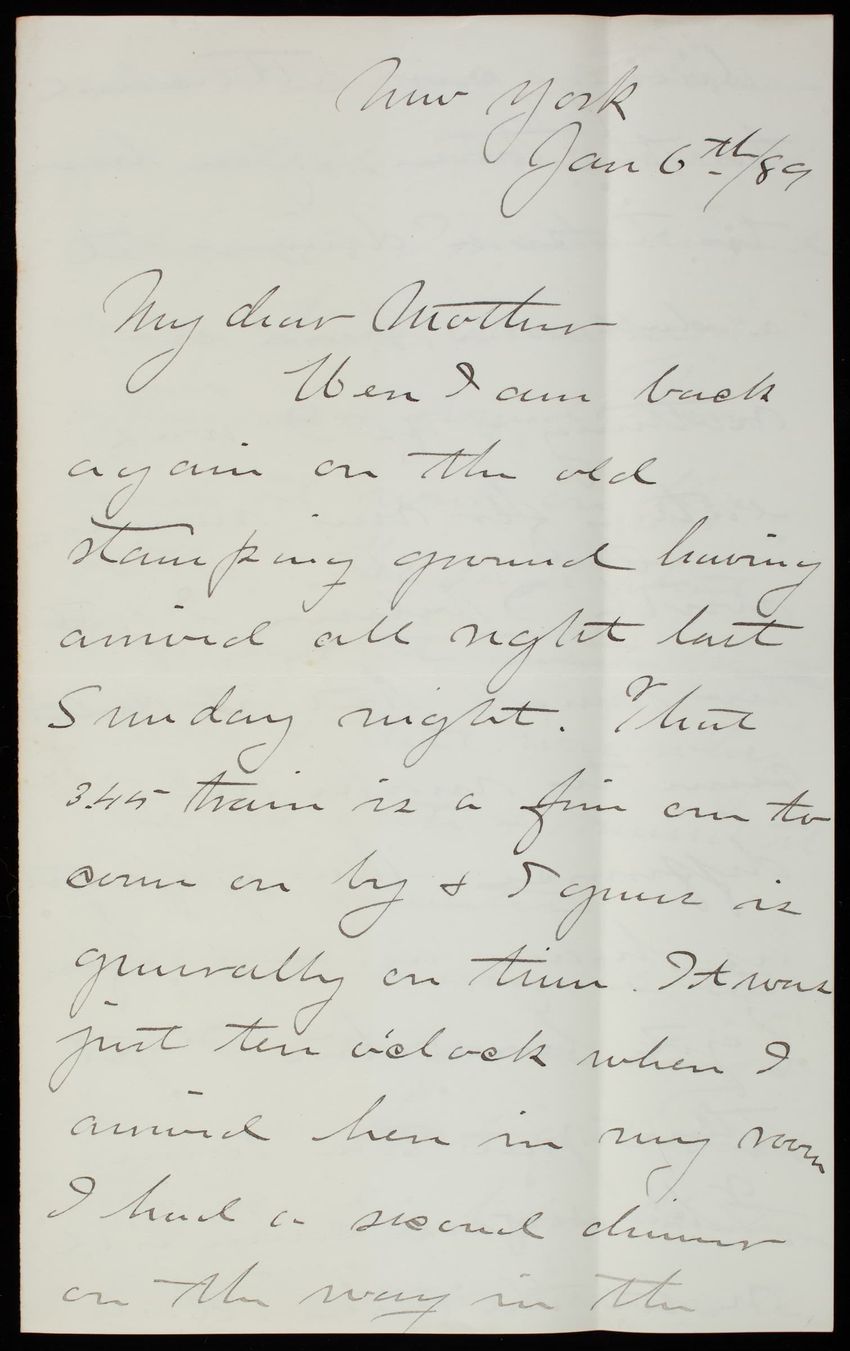 New York
Jan 6th/89
My dear Mother
Here I am back
again on the old
stamping ground having
arrived all right last
Sunday night. That
3.45 train is a fine one to
come on by & I guess is
generally on time. It was
just ten o'clock when I
arrived here in my room
I had a second dinner
on the way in the